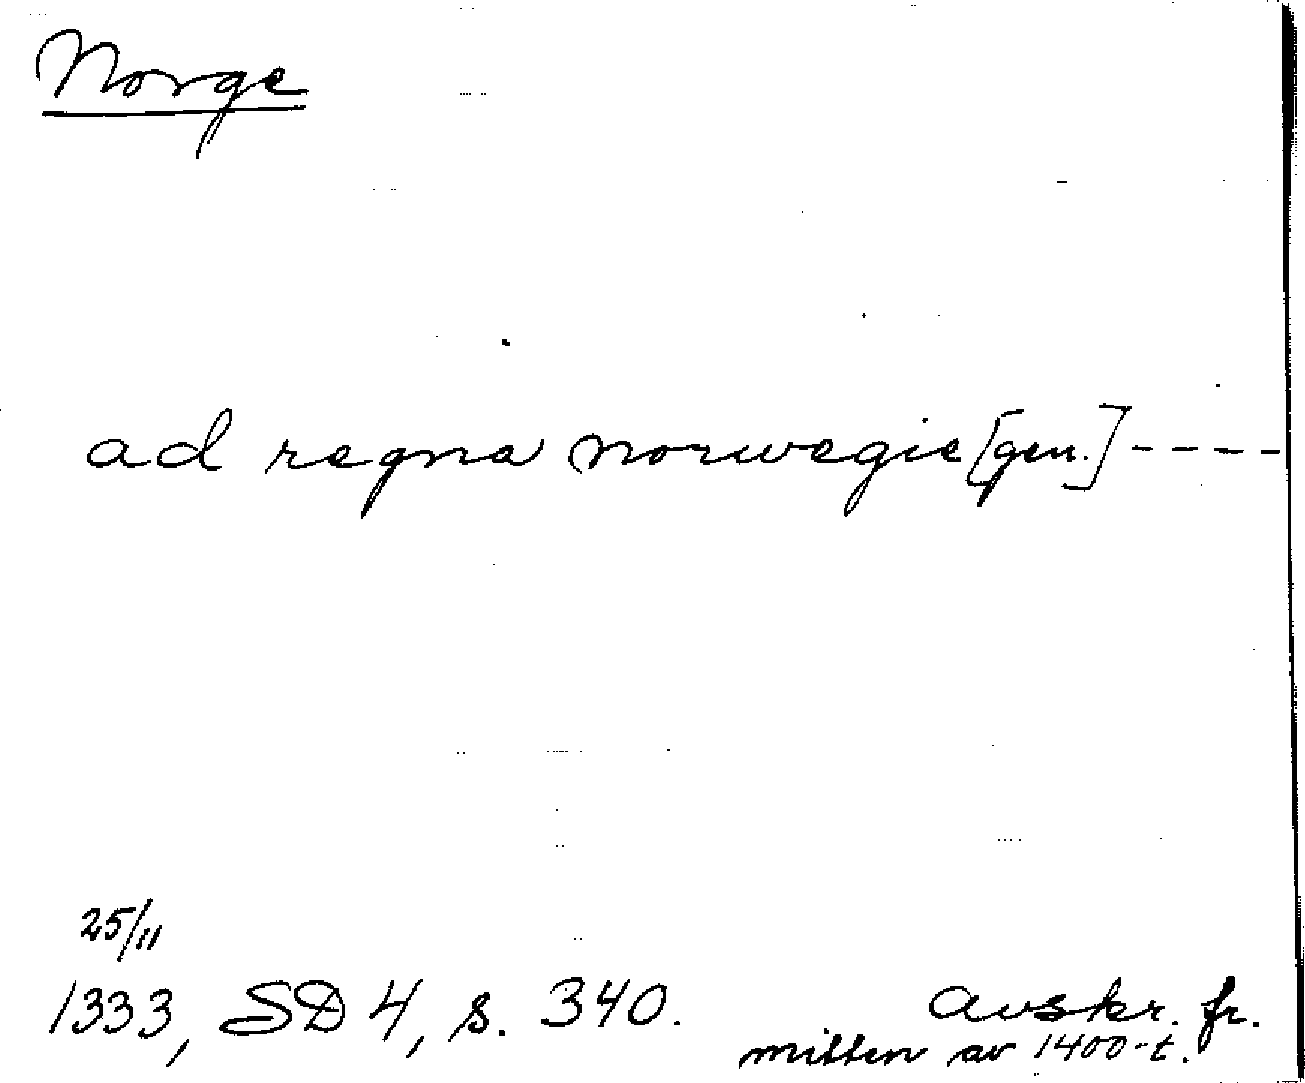 Norge
ad regna norwegie [gen.] ----
25/11
1333, SD 4, s. 340.
avskr. fr.
mitten av 1400-t.